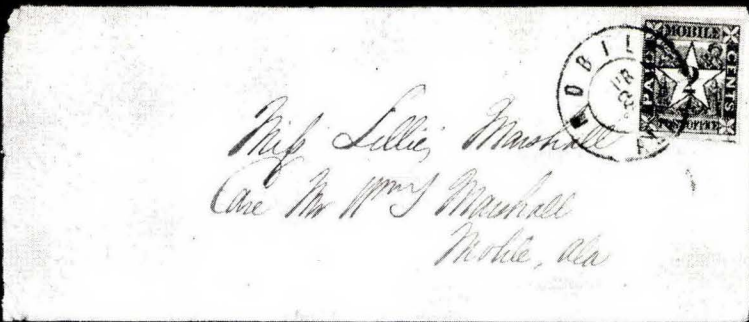 MOBILE
PAID 2 CENTS
POST OFFICE
MOBILE
Miss Lillie Marshall
Care Mr Wm J Marshall
Mobile, Ala